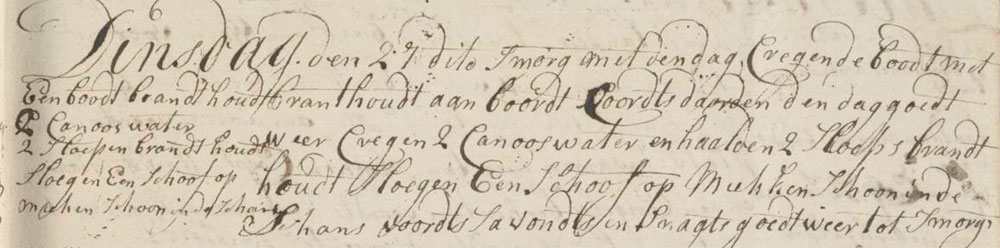 Dinsdag den 27 dito Smorg met den dag Cregen de boodt met
Een boodt brandthoudt branthoudt aan boordt voordts daarden den dag goedt
2 Canoos water
weer Cregen 2 Canoos water en haalden 2 Sloeps brandt
2 Sloepen brandthoudt
houdt Sloegen Een Schoof op Makken Schoon inde
Sloegen Een Schoof op
Maeken Schoon inde Schans
Schans voordts Savondts en Snagts goedt weer tot Smorgs